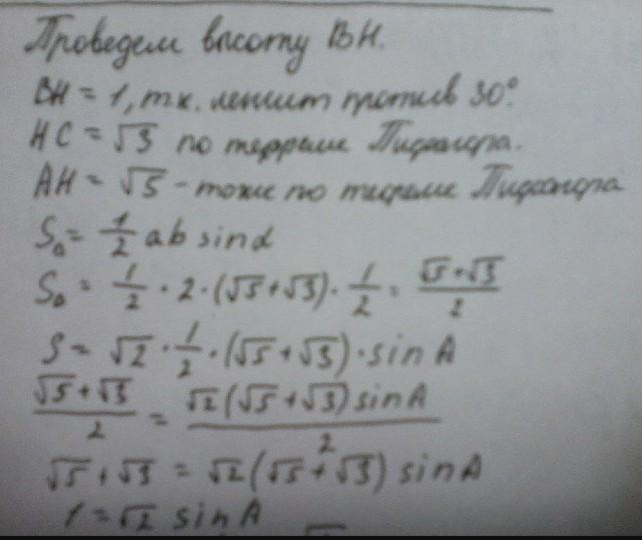 Проведем высоту BH.
BH = 1, т.к. лежит против 30°.
HC = √3 по теореме Пифагора.
AH = √5 - тоже по теореме Пифагора
S△ = 1/2 ab sinα
S△ = 1/2 · 2 · (√5+√3) · 1/2 = (√5+√3)/2
S = √2 · 1/2 · (√5+√3) · sin A
(√5+√3)/2 = √2(√5+√3) sin A/2
√5+√3 = √2(√5+√3) sin A
1 = √2 sin A